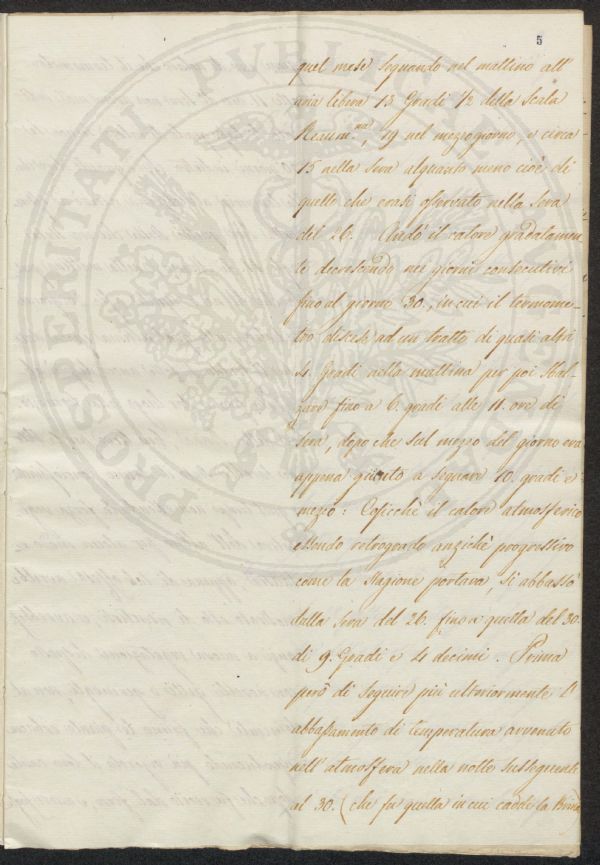 5
quel mese segnando nel mattino all'
aria libera 13 Gradi 1/2 della Scala
Reaum.na, 19 nel mezzogiorno, e circa
15 nella sera alquanto meno cioè di
quello che erasi osservato nella sera
del 26. Andò il calore gradatamen
te decrescendo nei giorni consecutivi
fino al giorno 30., in cui il termome-
tro discese ad un tratto di quasi altri
4. Gradi nella mattina per poi sbal-
zare fino a 6. gradi alle 11. ore di
sera, dopo che sul mezzo del giorno era
appena giunto a segnare 10. gradi e
mezzo: Cosicchè il calore atmosferico
essendo retrogrado anzichè progressivo
come la stagione portava, si abbassò
dalla sera del 26. fino a quella del 30.
di 9. Gradi e 4 decimi. Prima
però di seguire più ulteriormente l'
abbassamento di temperatura avvenuto
nell'atmosfera nella notte susseguente
al 30. (che fu quella in cui cadde la Brina
PROSPERITATI PUBLICAE